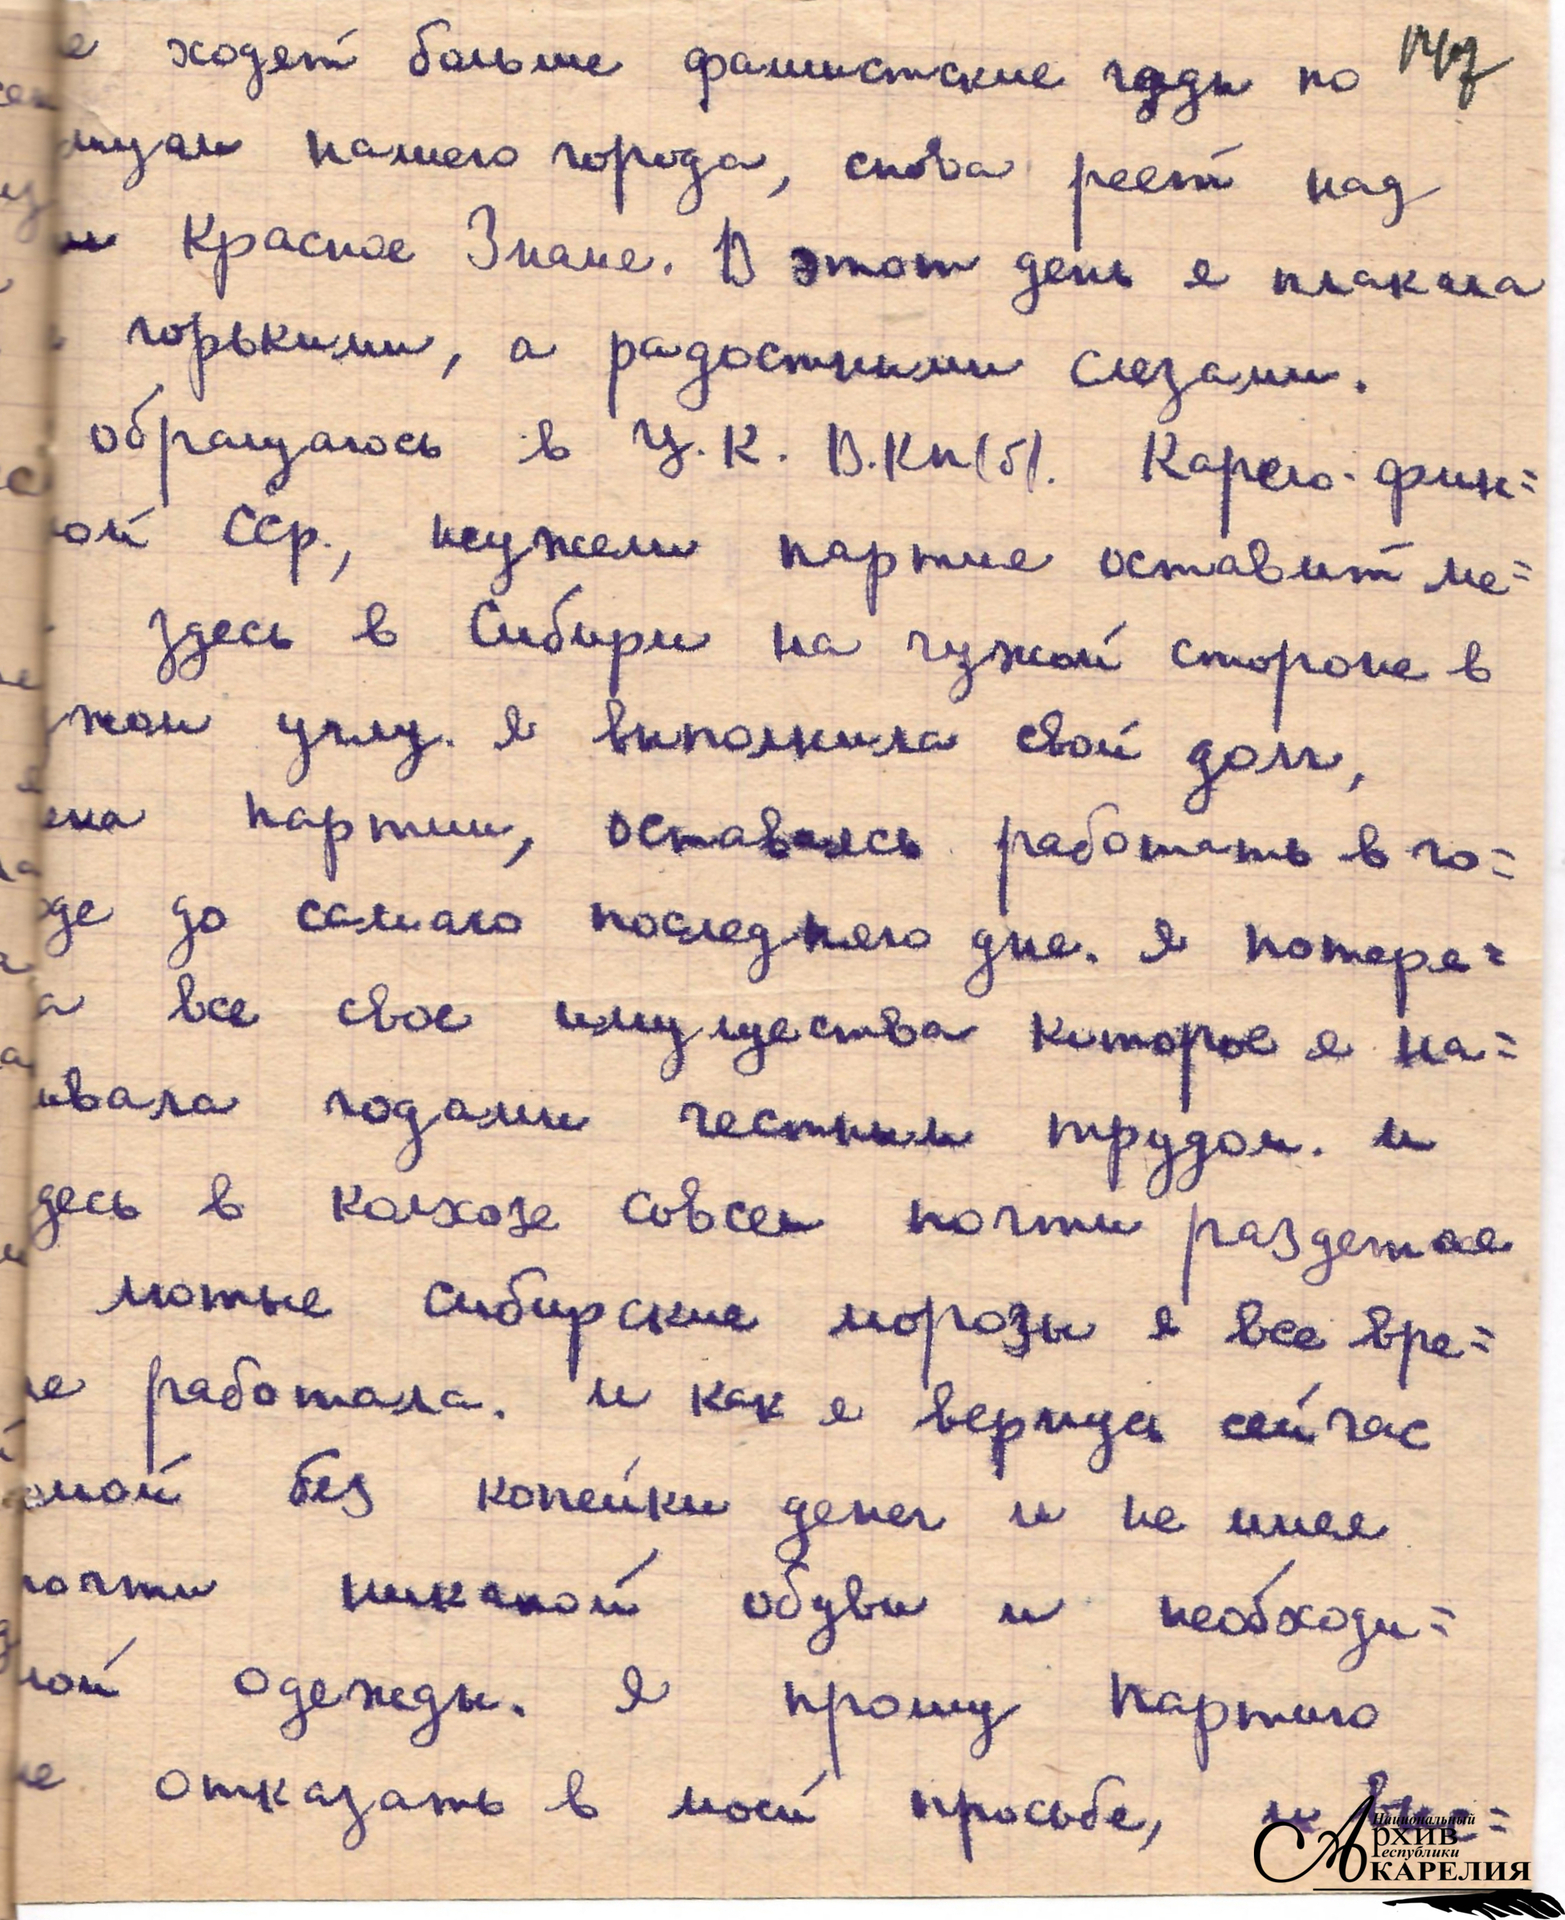 е ходет больше фашистские гады по 147
лицам нашего города, снова реет над
им Красное Знаме. В этот день я плакала
горькими, а радостными слезами.
обращаюсь в Ц.К. В.Кп(б). Карело-фин=
ой ССр., неужели партие оставит ме=
здесь в Сибири на чужой стороне в
жом углу. Я выполнила свой долг,
ена партии, оставаясь работать в го=
оде до самаго последняго дне. Я потере=
а все свое имущества которое я на=
ивала годами честным трудом. и
десь в колхозе совсем почти раздетое
лютые сибирские морозы я все вре=
е работала. и как я вернусь сейчас
омой без копейки денег и не имее
почти никакой обуви и необходи=
мой одежды. Я прошу партию
не отказать в моей просьбе, и
Национальный
Архив
Республики
Карелия